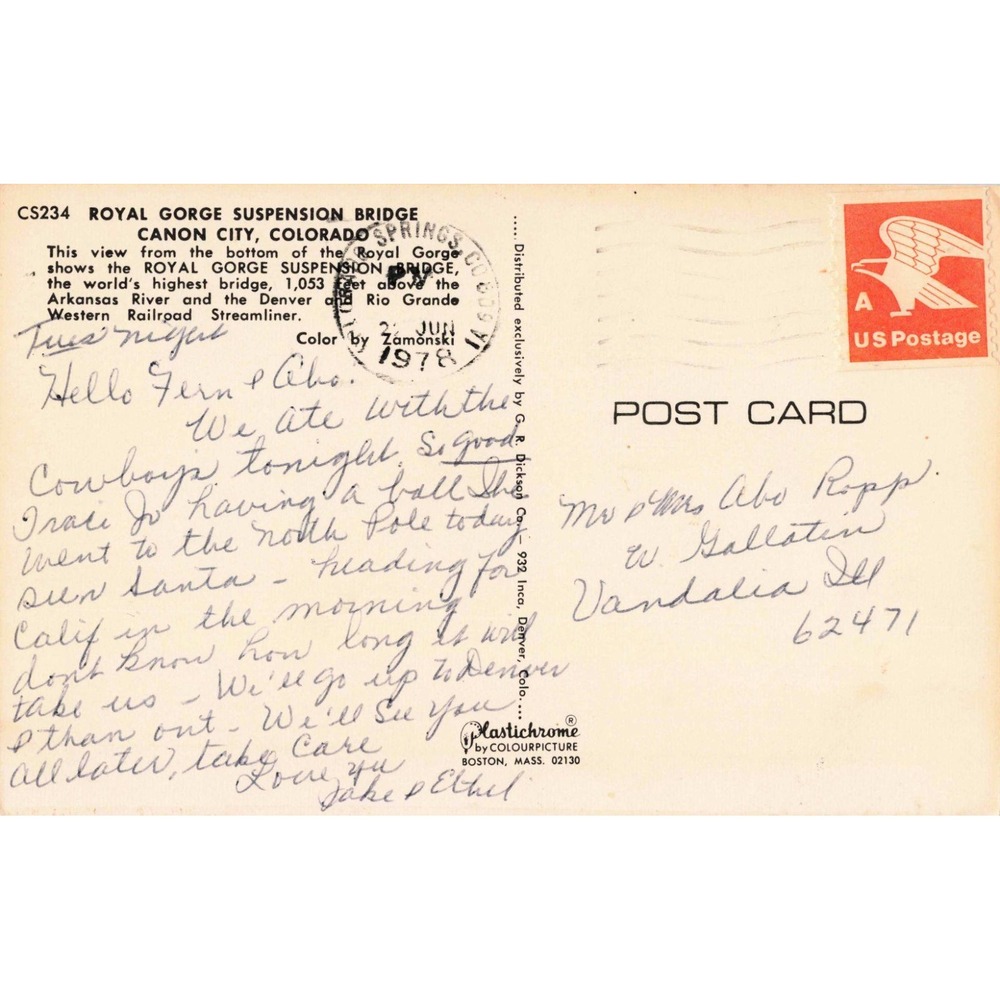 CS234 ROYAL GORGE SUSPENSION BRIDGE
CANON CITY, COLORADO
This view from the bottom of the Royal Gorge
shows the ROYAL GORGE SUSPENSION BRIDGE,
the world's highest bridge, 1,053 feet above the
Arkansas River and the Denver and Rio Grande
Western Railroad Streamliner.
Color by Zamonski
SPRINGS, CO 809
PM
JUN
1978
1A
A
US Postage
POST CARD
Tues night
Hello Fern & Abo.
We ate with the
Cowboys tonight. So good
Traci Jo having a ball She
went to the North Pole today
seen Santa - heading for
Calif in the morning
dont know how long it will
take us - We'll go up to Denver
& than out - We'll See you
all later, take Care
Love you
Jake & Ethel
Mr & Mrs Abo Ropp.
W. Gallatin
Vandalia Ill
62471
..... Distributed exclusively by G. R. Dickson Co. — 932 Inca, Denver, Colo. ...
Plastichrome®
by COLOURPICTURE
BOSTON, MASS. 02130